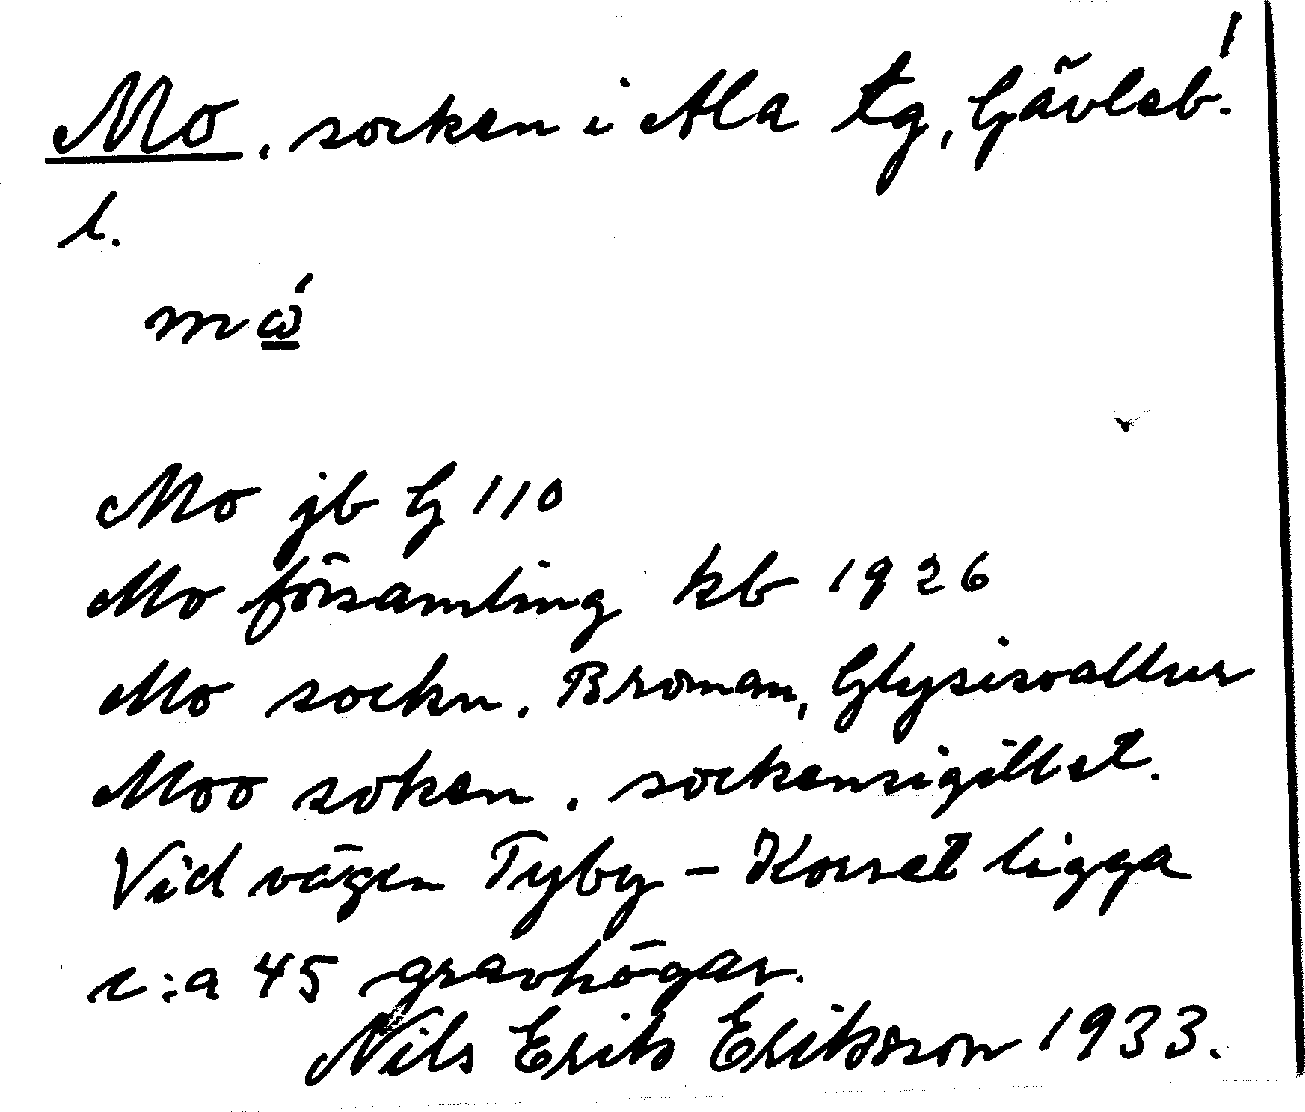 Mo. socken i Ala tg, Gävleb.
l.
mώ̲
Mo jb G 110
Mo församling kb 1926
Mo sockn. Broman, Glysisvallur
Moo soken. sockensigillet.
Vid vägen Tyby - Korset ligga
c:a 45 gravhögar.
Nils Erik Eriksson 1933.